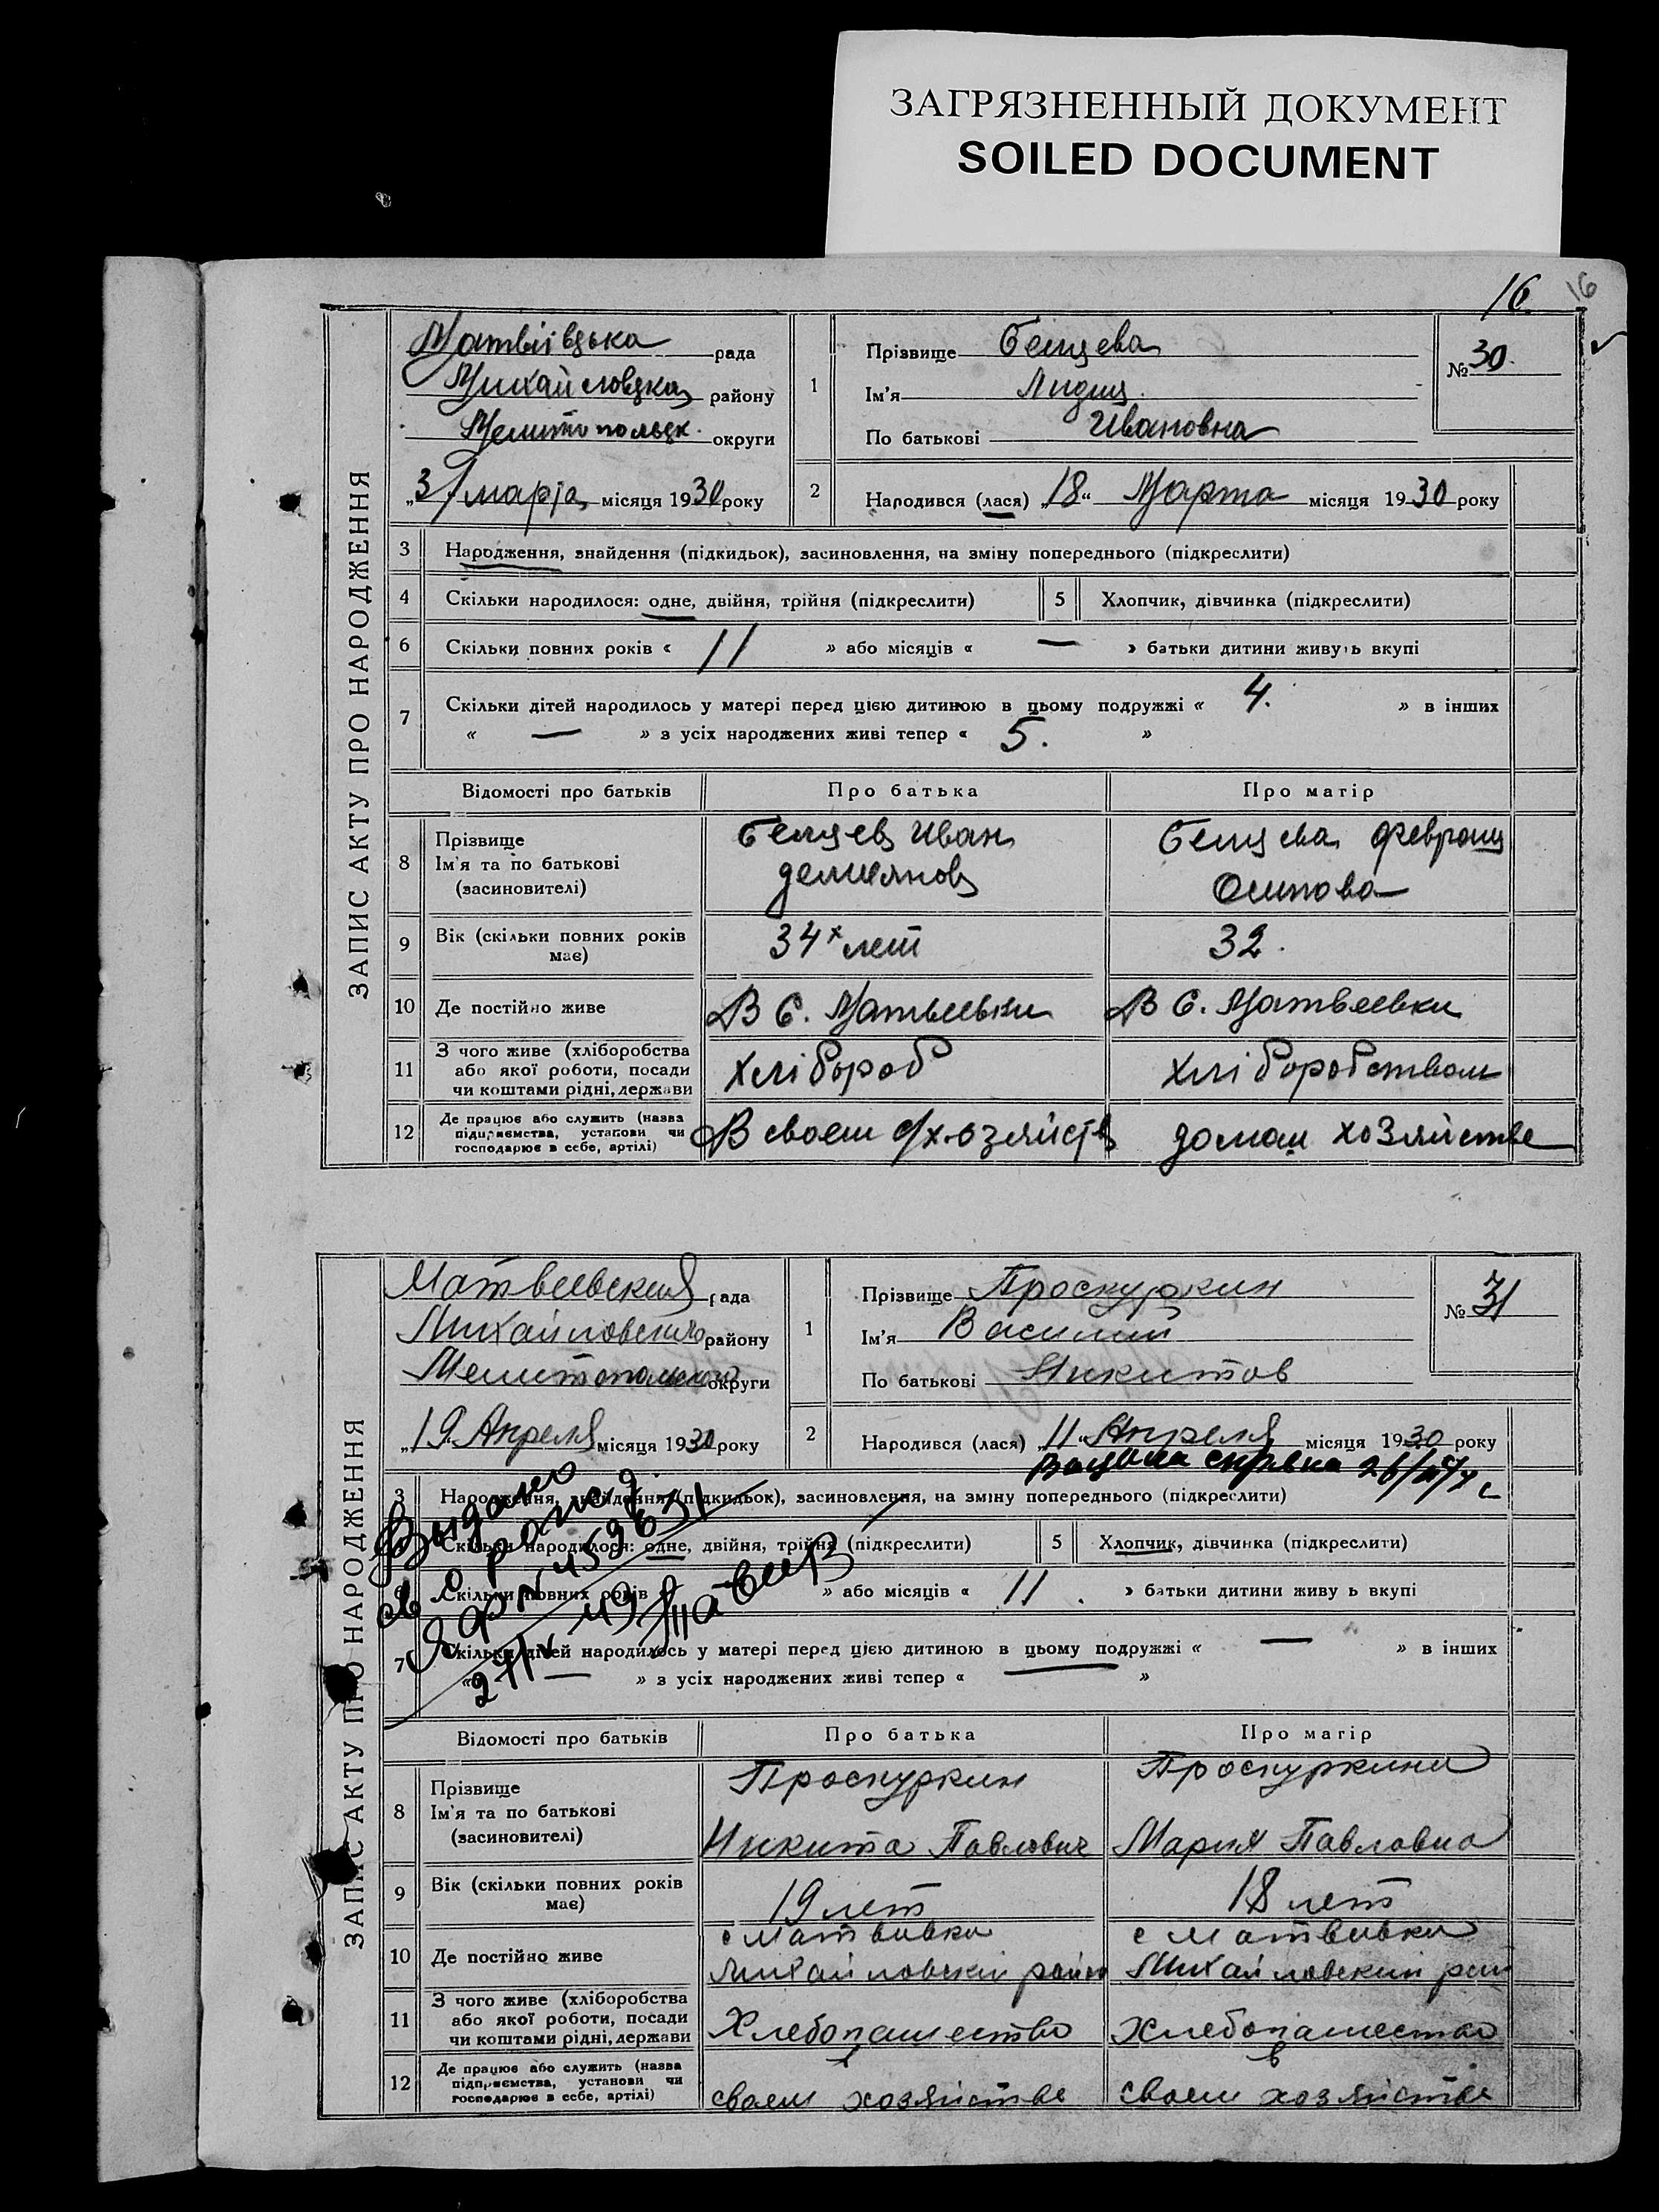 ЗАГРЯЗНЕННЫЙ ДОКУМЕНТ
SOILED DOCUMENT
16. 16
ЗАПИС АКТУ ПРО НАРОДЖЕННЯ
Матвіївцька рада
Михайловцка району
Мелитопольск. округи
„31 марта місяця 1930 року
1 Прізвище Белцева
Ім'я Лидия
По батькові Ивановна
№ 30.
2 Народився (лася) „18“ Марта місяця 1930 року
3 Народження, знайдення (підкидьок), засиновлення, на зміну попереднього (підкреслити)
4 Скільки народилося: одне, двійня, трійня (підкреслити) 5 Хлопчик, дівчинка (підкреслити)
6 Скільки повних років « 11 » або місяців « — » батьки дитини живуть вкупі
7 Скільки дітей народилось у матері перед цією дитиною в цьому подружжі « 4. » в інших
« — » з усіх народжених живі тепер « 5. »
Відомості про батьків Про батька Про матір
8 Прізвище
Ім'я та по батькові
(засиновителі)
Белцев Иван
Белцева
Осипова
9 Вік (скільки повних років
має)
34х лет 32.
10 Де постійно живе В С. Матвеевки В С. Матвеевки
11 З чого живе (хліборобства
або якої роботи, посади
чи коштами рідні, держави
хлібороб хліборобством
12 Де працює або служить (назва
підприємства, установи чи
господарює в себе, артілі)
В своем с/хозяйств домаш хозяйстве
ЗАПИС АКТУ ПРО НАРОДЖЕННЯ
Матвеевская рада
Михайловского району
Мелитопольского округи
„19“ Апреля місяця 1930 року
1 Прізвище Проскуркин
Ім'я Василий
По батькові Никитов
№ 31
2 Народився (лася) „11“ Апреля місяця 1930 року
справка
3 Народження, знайдення (підкидьок), засиновлення, на зміну попереднього (підкреслити)
Видано
св. о рожд.
4 Скільки народилося: одне, двійня, трійня (підкреслити) 5 Хлопчик, дівчинка (підкреслити)
6 Скільки повних років » або місяців « 11. » батьки дитини живу ь вкупі
7 Скільки дітей народилось у матері перед цією дитиною в цьому подружжі « — » в інших
« — » з усіх народжених живі тепер « — »
Відомості про батьків Про батька Про матір
8 Прізвище
Ім'я та по батькові
(засиновителі)
Проскуркин Проскуркина
Никита Павлович Мария Павловна
9 Вік (скільки повних років
має)
19 лет 18 лет
10 Де постійно живе
с Матвивка с Матвивка
Михайловский район Михайловский рай
11 З чого живе (хліборобства
або якої роботи, посади
чи коштами рідні, держави
Хлебопашество Хлебопашество
12 Де працює або служить (назва
підприємства, установи чи
господарює в себе, артілі)
в в
своем хозяйстве своем хозяйстве